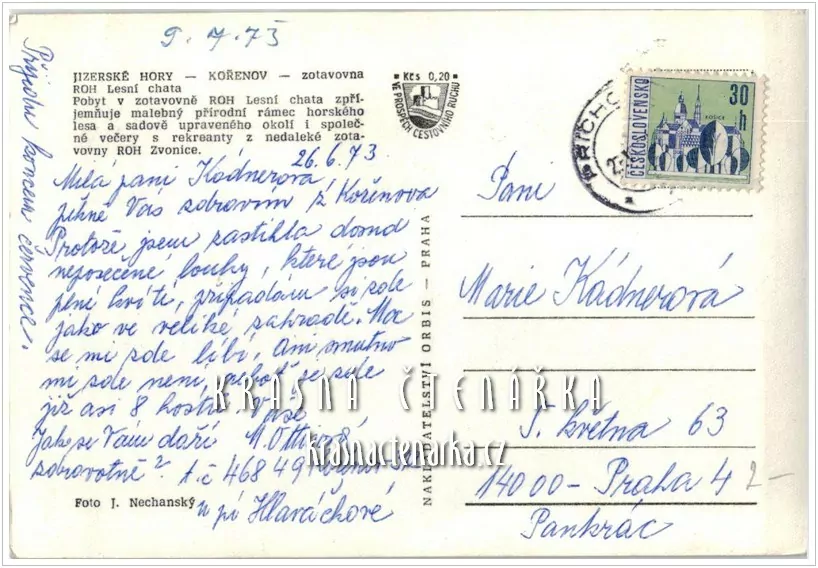 9.7.73
JIZERSKÉ HORY — KOŘENOV — zotavovna
ROH Lesní chata
Pobyt v zotavovně ROH Lesní chata zpří-
jemňuje malebný přírodní rámec horského
lesa a sadově upraveného okolí i společ-
né večery s rekreanty z nedaleké zota-
vovny ROH Zvonice.
Kčs 0,20
VE PROSPĚCH CESTOVNÍHO RUCHU
26.6.73
Milá paní Kádnerová,
pěkně Vás zdravím z Kořenova
Protože jsem zastihla dosud
neposečené louky, které jsou
plné kvítí, připadám si zde
jako ve veliké zahradě. Moc
se mi zde líbí. Ani smutno
mi zde není, neboť se zde
již asi 8 hostů Vaše
Jak se Vám daří
zdravotně? č. 468 49
u pí Hlaváčkové
Přijedu koncem července.
Foto J. Nechanský
NAKLADATELSTVÍ ORBIS — PRAHA
ČESKOSLOVENSKO
30 h
KOŠICE
Paní
Marie Kádnerová
5. května 63
14000 - Praha 4
Pankrác
2-
KRÁSNÁ ČTENÁŘKA
krasnactenarka.cz